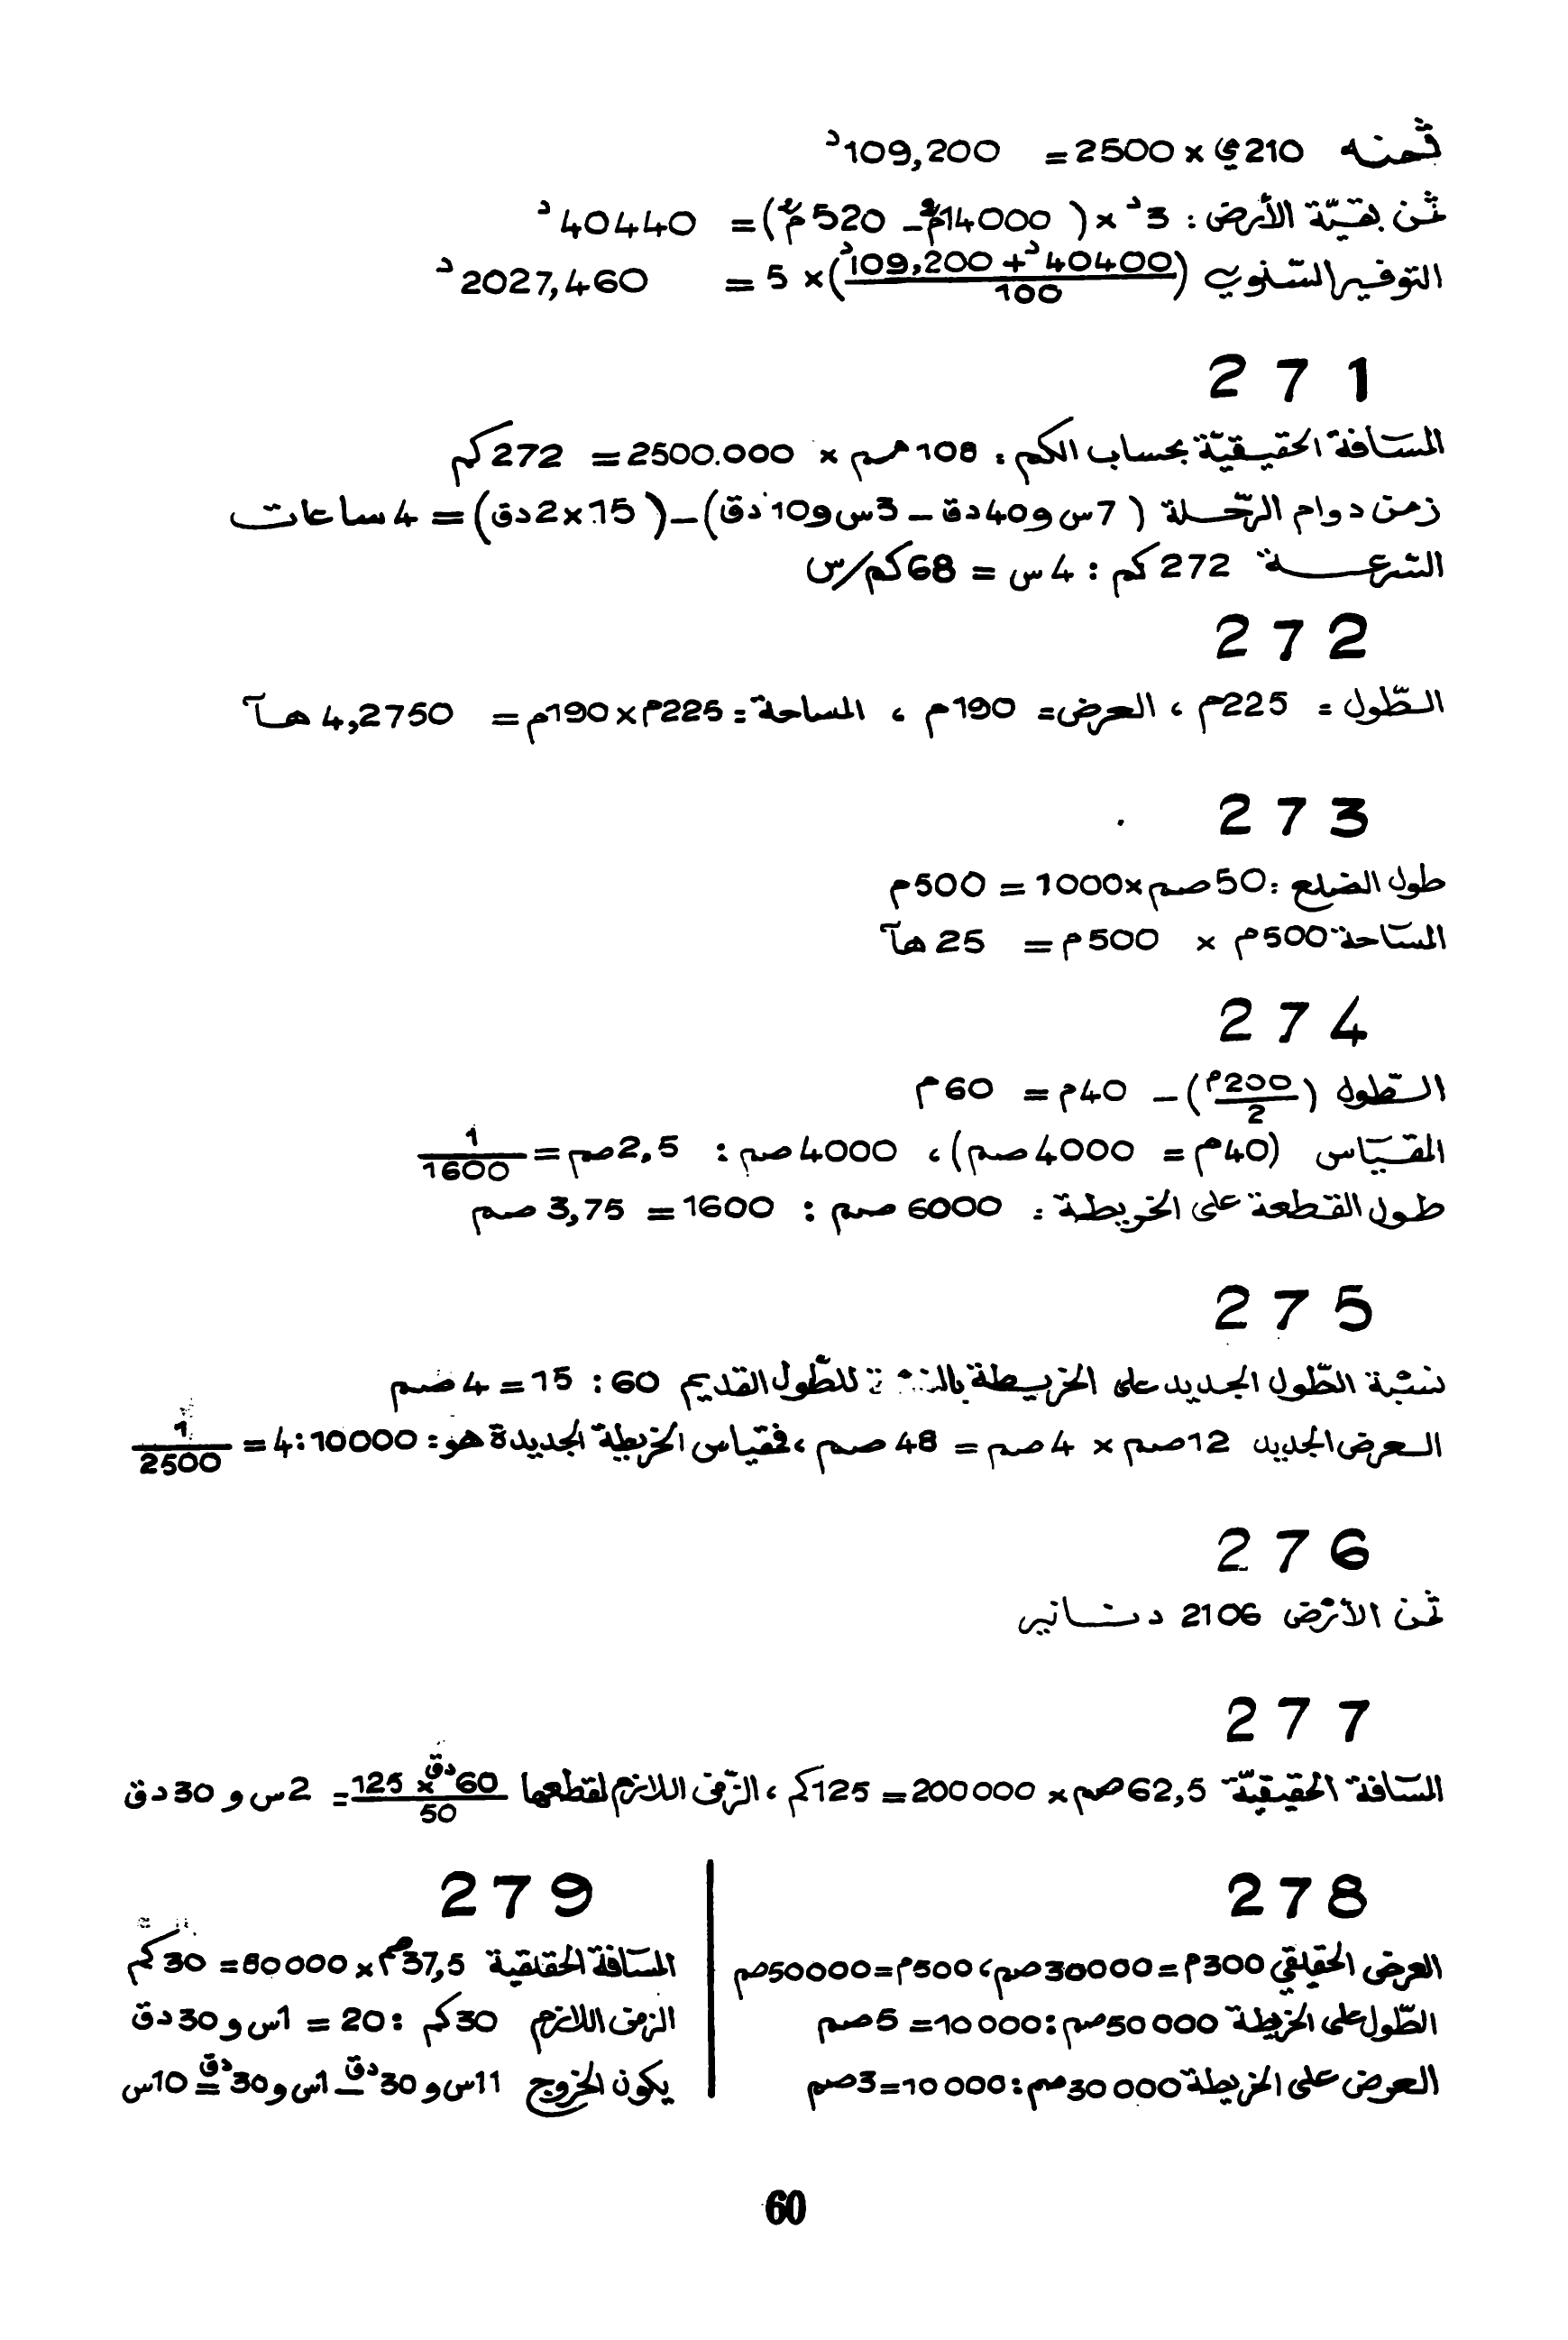 ثمنه 210ي × 2500 = 109,200د
ثمن بقيّة الأرض : 3د × ( 14000م² – 520م²) = 40440د
التوفير السّنوي (40400د + 109,200د / 100) × 5 = 2027,460د
271
المسَافة الحقيقيّة بحساب الكم : 108 صم × 2500.000 = 272 كم
زمن دوام الرّحلة ( 7س و40دق – 3س و10دق) – ( 15×2دق) = 4 ساعات
السّرعة 272 كم : 4 س = 68كم/س
272
الطّول = 225م ، العرض= 190م ، المساحة = 225م×190م = 4,2750 هآ
273
طول الضلع : 50صم×1000 = 500م
المسَاحة 500م × 500م = 25 هآ
274
الطّول (200م / 2) – 40م = 60م
المقيَاس (40م = 4000صم)، 4000صم : 2,5صم = 1/1600
طول القطعة على الخريطة : 6000 صم : 1600 = 3,75 صم
275
نسْبة الطّول الجديد على الخريطة للطّول القديم 60 : 15 = 4صم
العرض الجديد 12صم × 4صم = 48 صم ، فمقياس الخريطة الجديدة هو : 10000:4 = 1/2500
276
ثمن الأرْض 2106 دنانير
277
المسَافة الحقيقيّة 62,5صم × 200000 = 125كم ، الزّمن اللازم لقطعها 60دق × 125 / 50 = 2س و 30دق
278
العرض الحقيقي 300م = 30000صم، 500م = 50000صم
الطّول على الخريطة 50000صم : 10000 = 5صم
العرض على الخريطة 30000صم : 10000 = 3صم
279
المسَافة الحقيقية 37,5صم × 80000 = 30كم
الزمن اللازم 30كم : 20 = 1س و30دق
يكون الخروج 11س و30دق – 1س و30دق = 10س
60